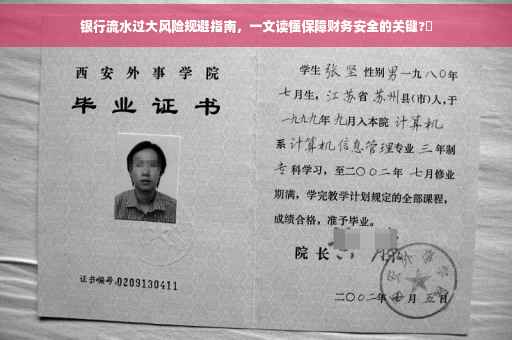 银行流水过大风险规避指南，一文读懂保障财务安全的关键?
西安外事学院
毕业证书
证书编号:0209130411
学生 张坚 性别 男 一九八〇年
七月生，江苏省 苏州县(市)人，于
一九九九年 九月入本院 计算机
系 计算机信息管理专业 三 年制
专科学习，至二〇〇二年 七月修业
期满，学完教学计划规定的全部课程，
成绩合格，准予毕业。
院长
二〇〇二年 月 五日